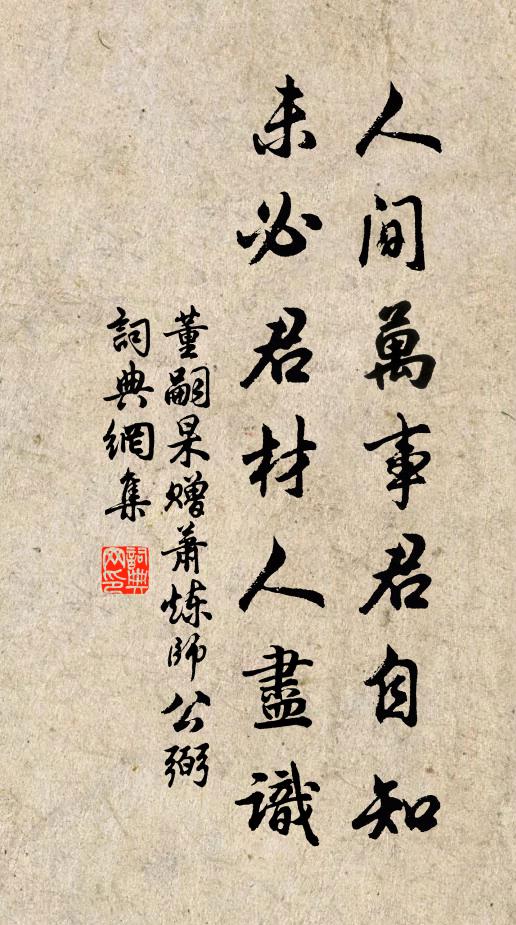 人間萬事君自知
未必君材人盡識
董嗣杲贈蕭煉師公弼
詞典網集
詞典網印